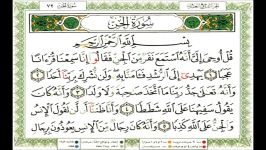 سُورَةُ الْجِنِّ
٧٢
بِسْمِ اللَّهِ الرَّحْمَٰنِ الرَّحِيمِ
قُلْ أُوحِيَ إِلَيَّ أَنَّهُ اسْتَمَعَ نَفَرٌ مِّنَ الْجِنِّ فَقَالُوا إِنَّا سَمِعْنَا قُرْآنًا
عَجَبًا ۝ يَهْدِي إِلَى الرُّشْدِ فَآمَنَّا بِهِ وَلَن نُّشْرِكَ بِرَبِّنَا أَحَدًا ۝
وَأَنَّهُ تَعَالَىٰ جَدُّ رَبِّنَا مَا اتَّخَذَ صَاحِبَةً وَلَا وَلَدًا ۝ وَأَنَّهُ كَانَ
يَقُولُ سَفِيهُنَا عَلَى اللَّهِ شَطَطًا ۝ وَأَنَّا ظَنَنَّا أَن لَّن تَقُولَ الْإِنسُ
وَالْجِنُّ عَلَى اللَّهِ كَذِبًا ۝ وَأَنَّهُ كَانَ رِجَالٌ مِّنَ الْإِنسِ يَعُوذُونَ بِرِجَالٍ